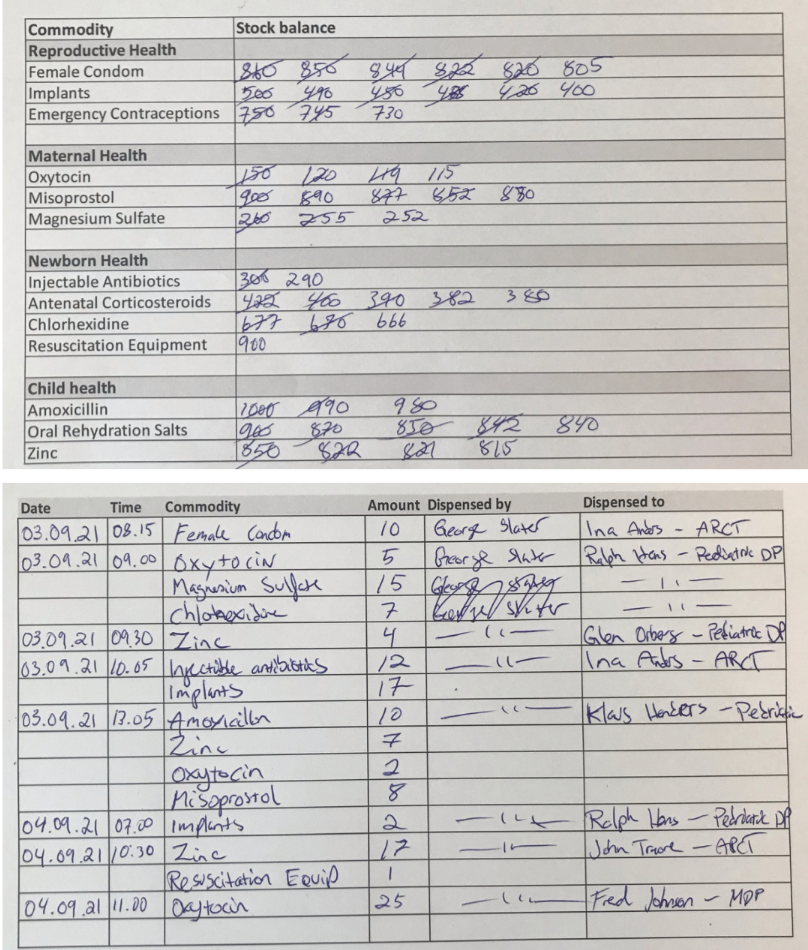 Commodity Stock balance
Reproductive Health
Female Condom 860 850 844 822 820 805
Implants 500 490 450 420 400
Emergency Contraceptions 750 745 730
Maternal Health
Oxytocin 150 120 119 115
Misoprostol 900 890 877 852 880
Magnesium Sulfate 260 255 252
Newborn Health
Injectable Antibiotics 300 290
Antenatal Corticosteroids 422 400 390 382 380
Chlorhexidine 677 670 666
Resuscitation Equipment 900
Child health
Amoxicillin 1000 990 980
Oral Rehydration Salts 900 870 850 842 840
Zinc 850 822 821 815
Date Time Commodity Amount Dispensed by Dispensed to
03.09.21 08.15 Female Condom 10 George Slater Ina Anders - ARCT
03.09.21 09.00 Oxytocin 5 George Slater Ralph Hans - Pediatric DP
Magnesium Sulfate 15 George Slater — 11 —
Chlorhexidine 7 George Slater — 11 —
03.09.21 09.30 Zinc 4 — 11 — Glen Orberg - Pediatric DP
03.09.21 10.05 Injectable antibiotics 12 — 11 — Ina Anders - ARCT
Implants 17
03.09.21 13.05 Amoxicillin 10 — 11 — Klaus Henders - Pedriatic
Zinc 7
Oxytocin 2
Misoprostol 8
04.09.21 07.00 Implants 2 — 11 — Ralph Hans - Pedriatric DP
04.09.21 10.30 Zinc 17 — 11 — John - ARCT
Resuscitation Equip 1
04.09.21 11.00 Oxytocin 25 — 11 — Fred Johnson - MDP